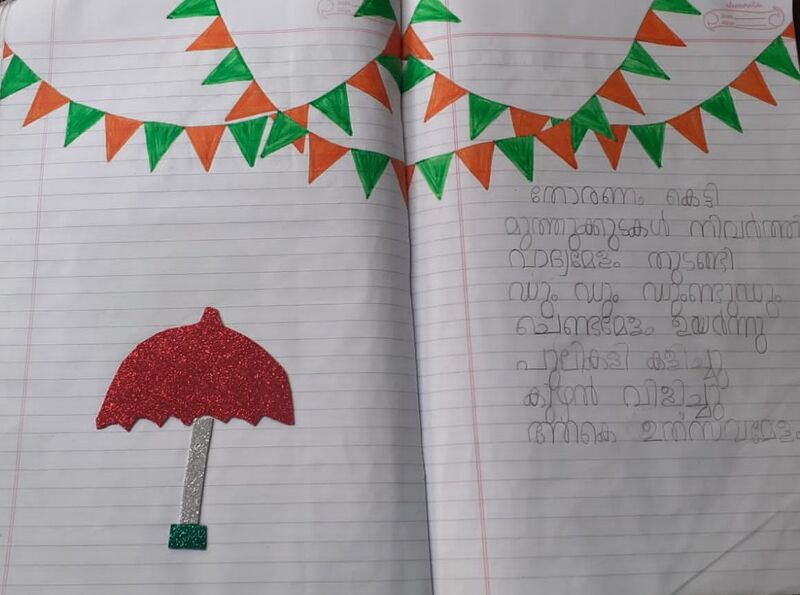 തോരണം കെട്ടി
മുത്തുക്കുടകൾ നിവർത്തി
വാദ്യമേളം തുടങ്ങി
ഡും ഡും ഡുംണ്ടുഡും
ചെണ്ടമേളം ഉയർന്നു
പുലികളി കളിച്ചു
കുഴൽ വിളിച്ചു
ആകെ ഉത്സവമേളം